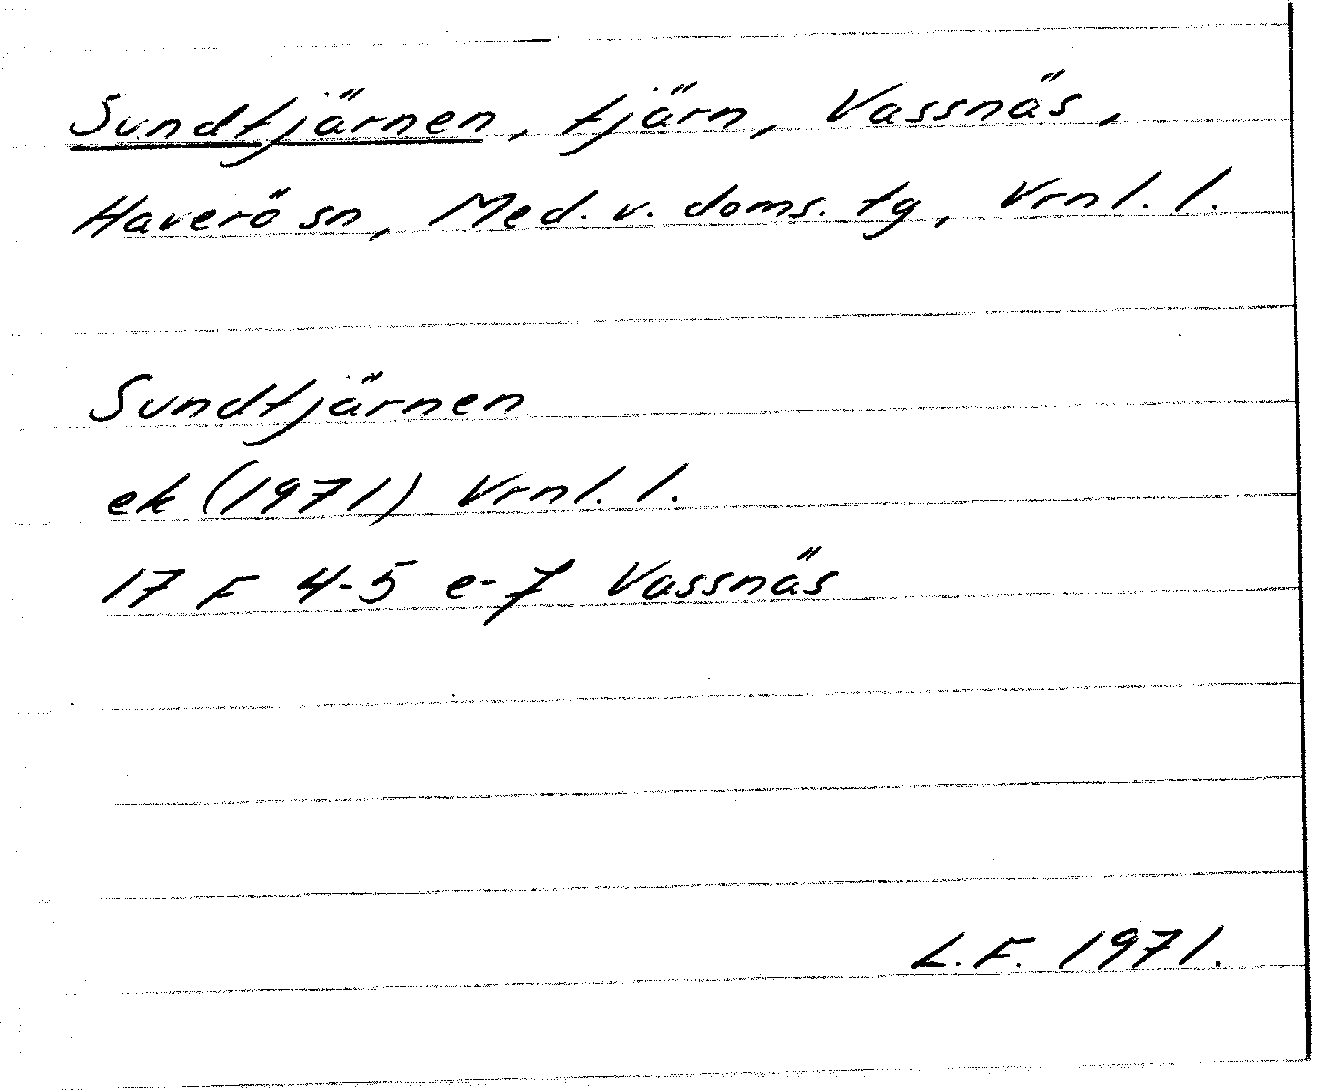 Sundtjärnen, tjärn, Vassnäs,
Haverö sn, Med. v. doms. tg, Vrnl. l.
Sundtjärnen
ek (1971) Vrnl. l.
17 F 4-5 e-f Vassnäs
L.F. 1971.